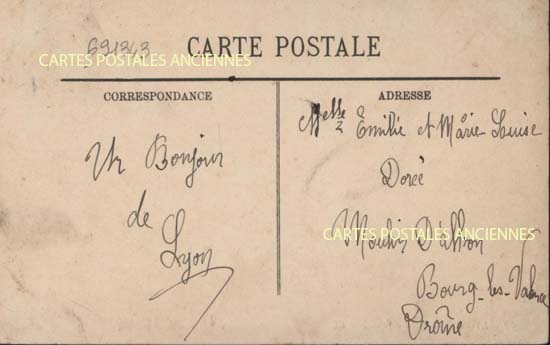 691343
CARTE POSTALE
CARTES POSTALES ANCIENNES
CORRESPONDANCE
Un Bonjour
de
Lyon
ADRESSE
Melles Emilie et Marie-Louise
Doreé
CARTES POSTALES ANCIENNES
Moulin
Bourg-les-Valence
Drôme